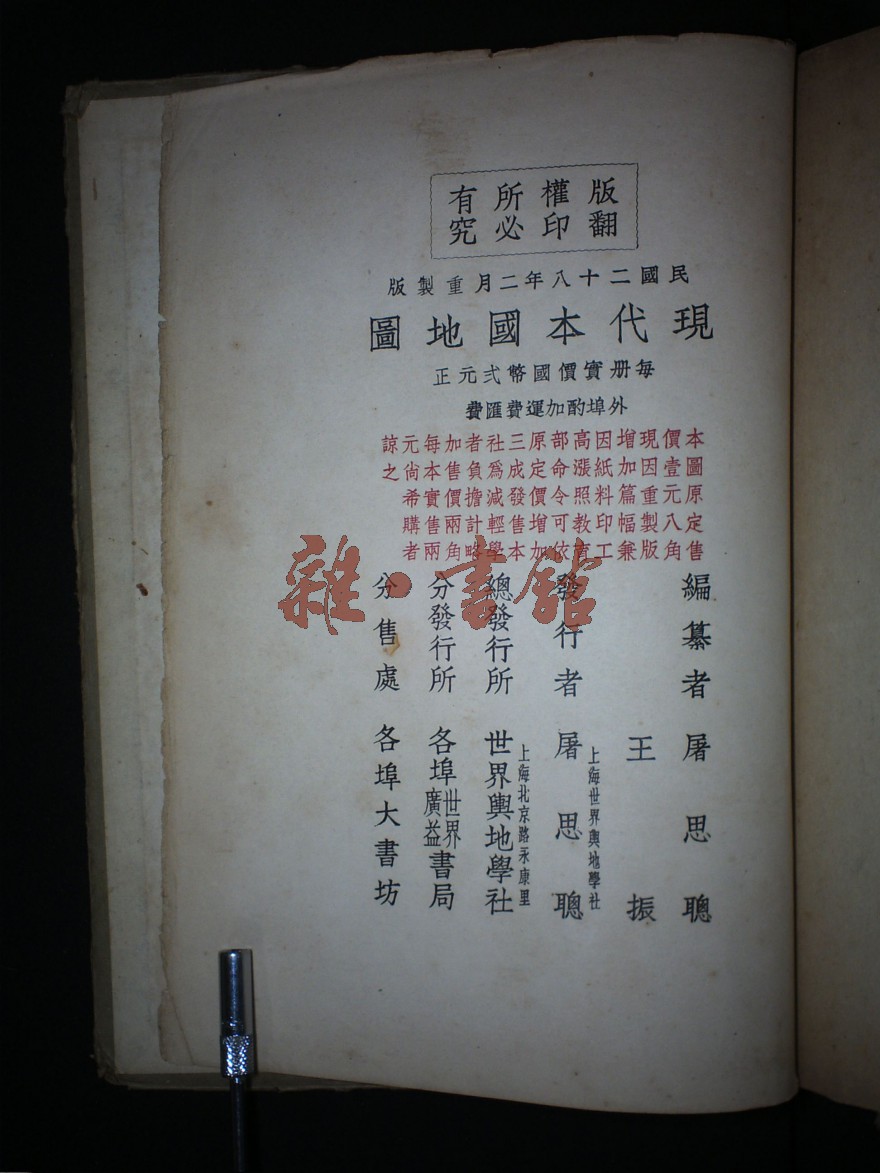 版權所有
翻印必究
民國二十八年二月重製版
現代本國地圖
每册實價國幣弍元正
外埠酌加運費匯費
本圖原定售
價壹元八角
現因重製版
增加篇幅兼
因紙料印工
高漲照教育
部命令可依
原定價增加
三成發售本
社爲減輕學
者負擔計略
加售價兩角
每本實售兩
元尚希購者
諒之
編纂者 屠思聰
王振
上海世界輿地學社
發行者 屠思聰
上海北京路永康里
總發行所 世界輿地學社
分發行所 各埠世界廣益書局
分售處 各埠大書坊
雜·書館